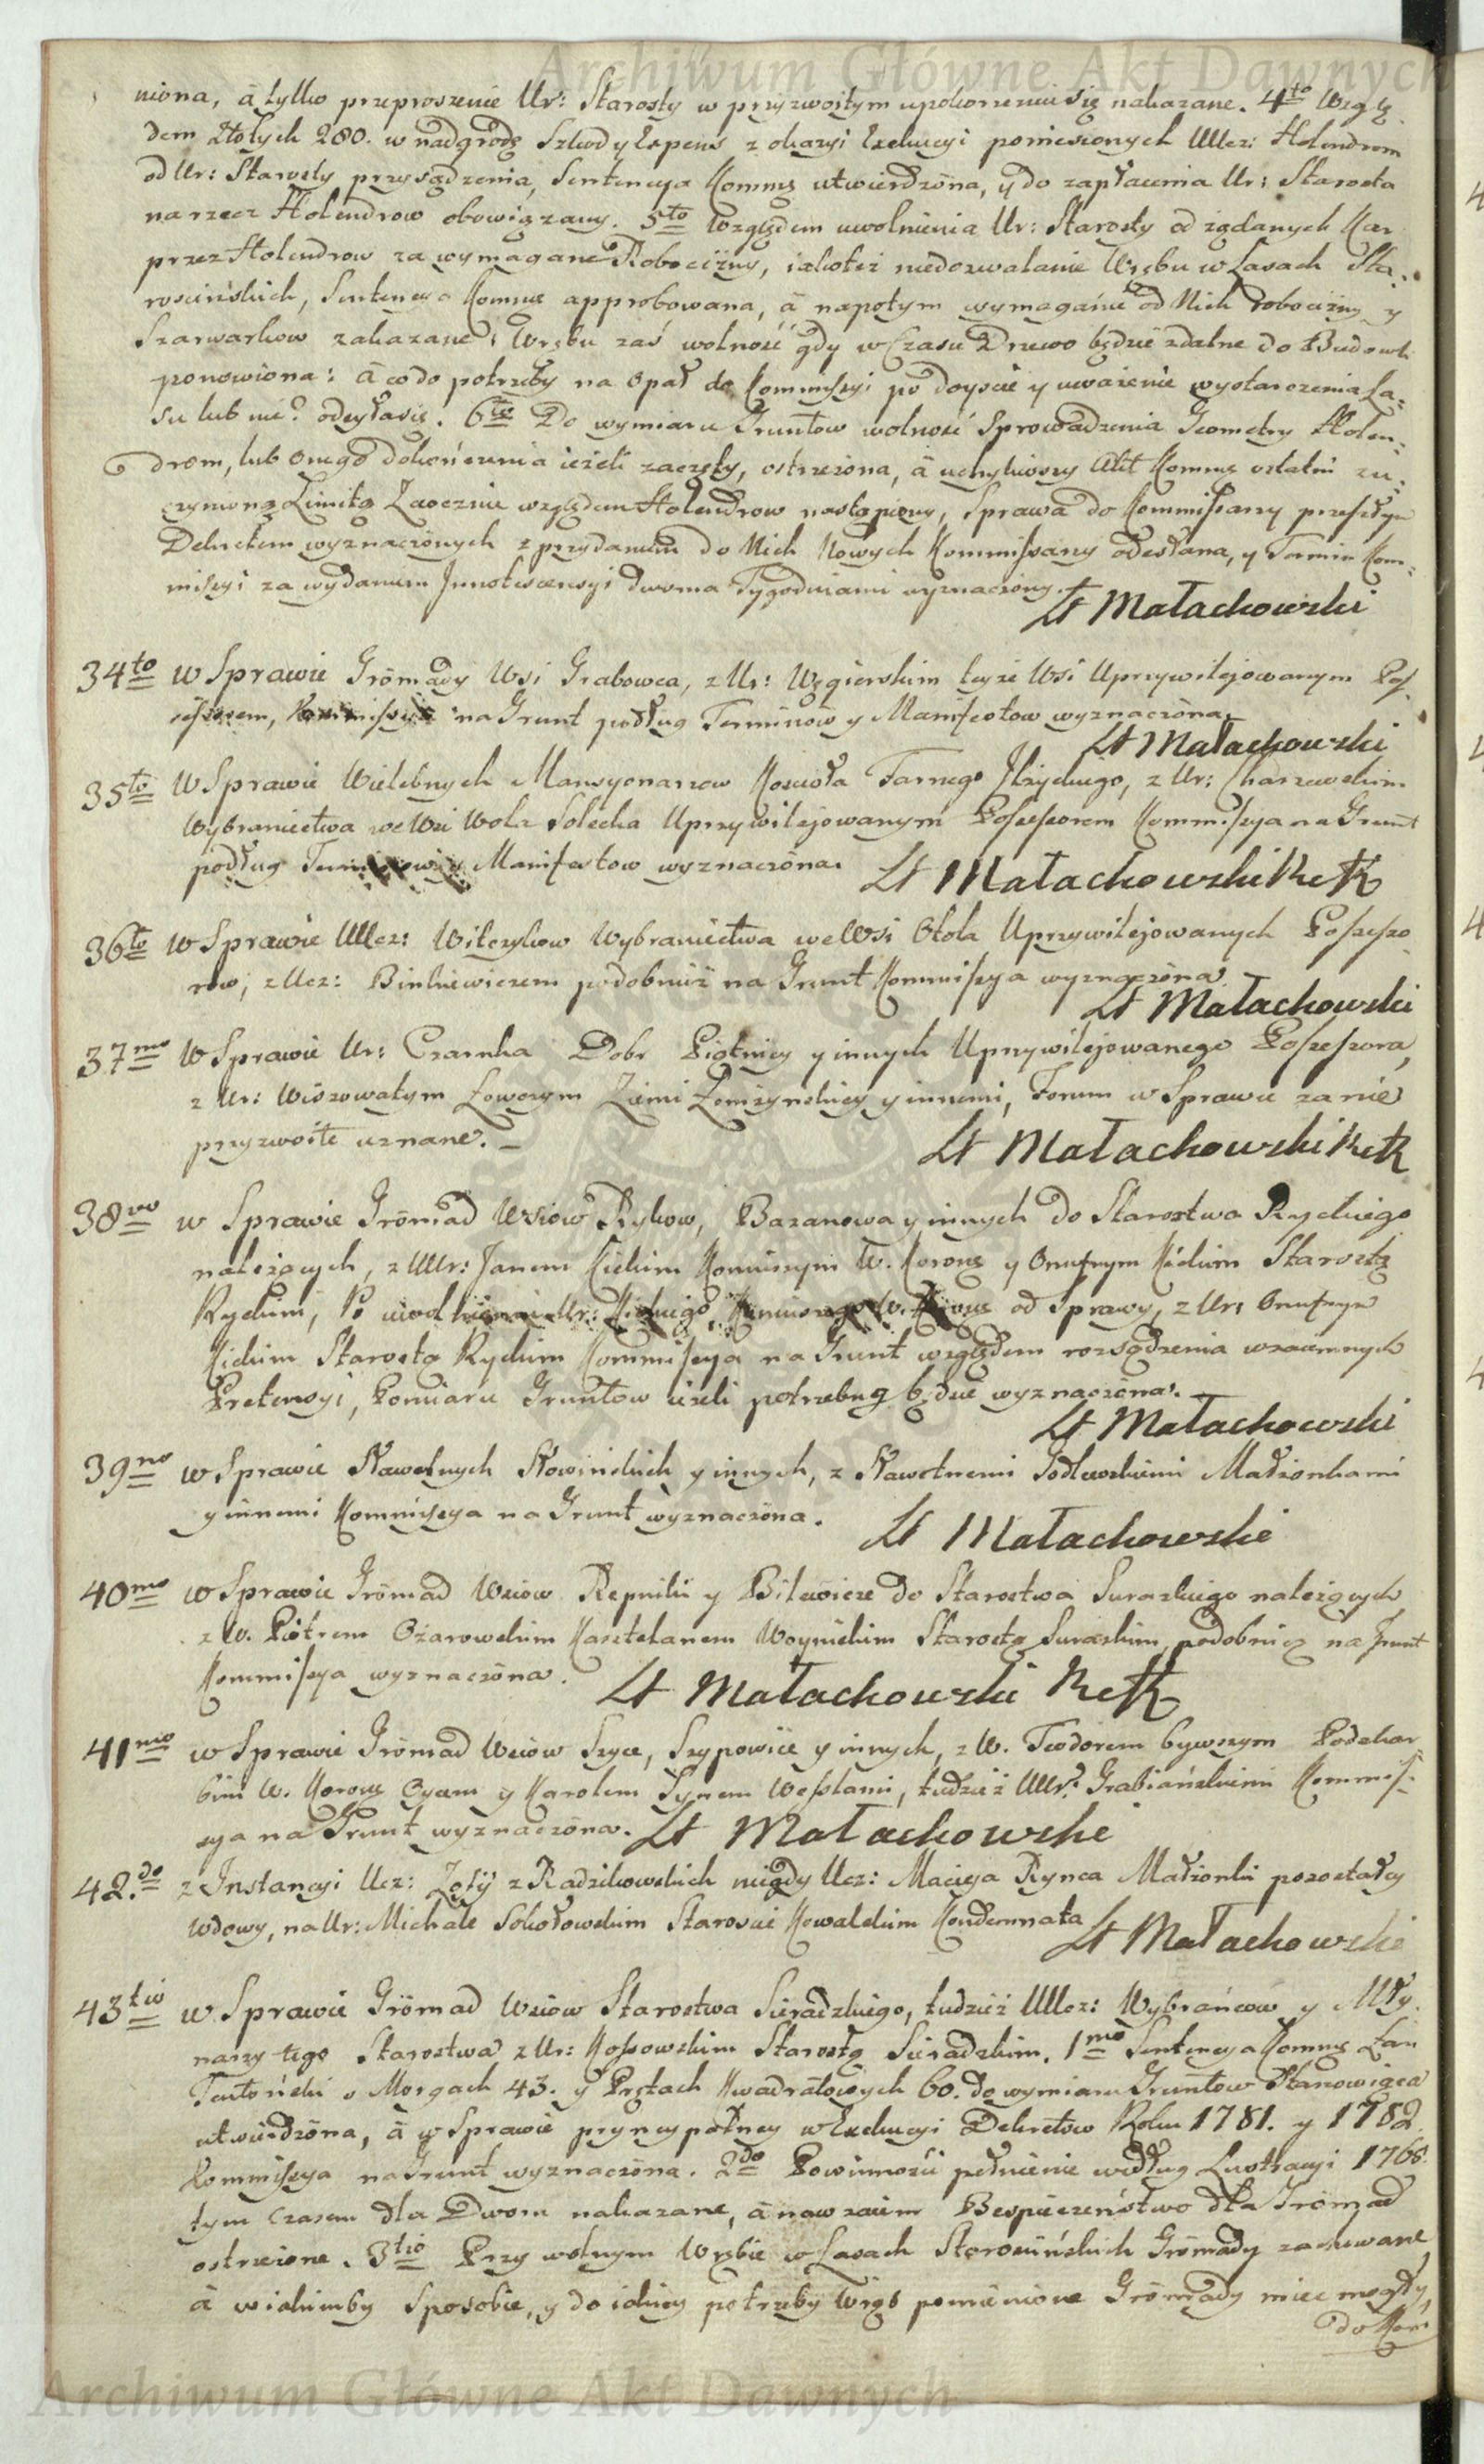 Archiwum Główne Akt Dawnych
niona, á tylko przeproszenie Ur: Starosty w przyzwoitym upokorzeniu się nakazane. 4to Wzglę
dem Złotych 280. w nadgrodę Szkod y Expens z okazyi Exekucyi poniesionych UUcz: Holendrom
od Ur: Starosty przysądzenia, Sentencya Kommis utwierdzona, y do zapłacenia Ur: Starosta
na rzecz Holendrow obowiązany. 5to Względem uwolnienia Ur: Starosty od żądanych Kar
przez Holendrow za wymagane Robocizny, iakoteż niedozwalanie Wrębu w Lasach Sta-
rościńskich, Sentencya Kommis approbowana, á napotym wymaganie od Nich robocizny y
Szarwarkow zakazane; Wrębu zaś wolność gdy w Czasie Drzewo będzie zdatne do Budowli
ponowiona: á co do potrzeby na Opał do Kommissyi po doyście y uważenie wystarczenia La-
su lub nie? odesłasię. 6to Do wymiaru Gruntow wolność Sprowadzenia Geometry Holen-
drom, lub onego dokończenia ieżeli zaczęty, ostrzeżona, á uchyliwszy Akt Kommis ostatni zu-
czynioną Limitą Zaocznie względem Holendrow nastąpiony, Sprawa do Kommissarzy przeszłym
Dekretem wyznaczonych z przydaniem do Nich Nowych Kommissarzy odesłana, y Termin Kom-
missyi za wydaniem Innotescencyi dwoma Tygodniami wyznaczony.
St Małachowski
34to w Sprawie Gromady Wsi Grabowca, z Ur: Węgierskim teyże Wsi Uprzywilejowanym Pos-
sessorem, Kommissya na Grunt podług Terminow y Manifestow wyznaczona.
St Małachowski
35to W Sprawie Wielebnych Mansyonarzow Kościoła Farnego Iłżyckiego, z Ur: Charzewskim
Wybraniectwa we Wsi Wola Solecka Uprzywilejowanym Possessorem Kommissya na Grunt
podług Terminow y Manifestow wyznaczona. St Małachowski RefK
36to W Sprawie UUcz: Witczykow Wybraniectwa we Wsi Okola Uprzywilejowanych Possesso
row, z Ucz: Binkiewiczem podobnież na Grunt Kommissya wyznaczona
St Małachowski
37mo W Sprawie Ur: Czarnka Dobr Piątnicy y innych Uprzywilejowanego Possessora,
z Ur: Wiszowatym Łowczym Ziemi Łomżynskiey y innemi, Forum w Sprawie za nie
przyzwoite uznane. St Małachowski RefK
38vo w Sprawie Gromad Wsiow Rykow, Bazanowa y innych do Starostwa Ryckiego
należących, z UUr: Janem Kickim Koniuszym W. Koronę y Onufrym Kickim Starostą
Ryckim, Po uwolnieniu Ur: Kickiego Koniuszego W. Korone od Sprawy, z Ur: Onufrym
Kickim Starostą Ryckim Kommissya na Grunt względem rozsądzenia wzaiemnych
Pretensyi, Pomiaru Gruntow ieżeli potrzebną będzie wyznaczona.
St Małachowski
39no w Sprawie Sławetnych Słowinskich y innych, z Sławetnemi Godlewskiemi Małżonkami
y innemi Kommissya na Grunt wyznaczona. St Małachowski
40mo w Sprawie Gromad Wsiow Rzepniki y Bilwicze do Starostwa Suraskiego należących
z W. Piotrem Ożarowskim Kasztelanem Woynickim Starostą Suraskim, podobnież na Grunt
Kommissya wyznaczona. St Małachowski RefK
41mo w Sprawie Gromad Wsiow Szyce, Szypowice y innych, z W. Teodorem bywszym Podskar
bim W. Koronę Oycem y Karolem Synem Wesslami, tudzież UUr: Grabiańskiemi Kommis-
sya na Grunt wyznaczona. St Małachowski
42do z Instancyi Ucz: Zofij z Radzikowskich niegdy Ucz: Macieja Rynca Małżonki pozostałey
Wdowy, na Ur: Michale Sokołowskim Starości Kowalskim Kondemnata
St Małachowski
43tio w Sprawie Gromad Wsiow Starostwa Sieradzkiego, tudzież UUcz: Wybrańcow y Mły
narzy tego Starostwa z Ur: Kossowskim Starostą Sieradzkim. 1mo Sentencya Kommis Łan
Teutoński o Morgach 43. y Prętach Kwadratowych 60. do wymiaru Gruntow Stanowiąca
utwierdzona, á w Sprawie pryncypalney w Exekucyi Dekretow Roku 1781. y 1782
Kommissya na Grunt wyznaczona. 2do Powinności pełnienie według Lustracyi 1768.
tym czasem dla Dworu nakazane, á nawzaiem Bespieczeństwo dla Gromad
ostrzeżone. 3tio Przy wolnym Wrębie w Lasach Starościńskich Gromady zachowane,
á w iakimby Sposobie, y do iakiey potrzeby Wręb pomienione Gromady miec mogły,
do Kom
Archiwum Główne Akt Dawnych